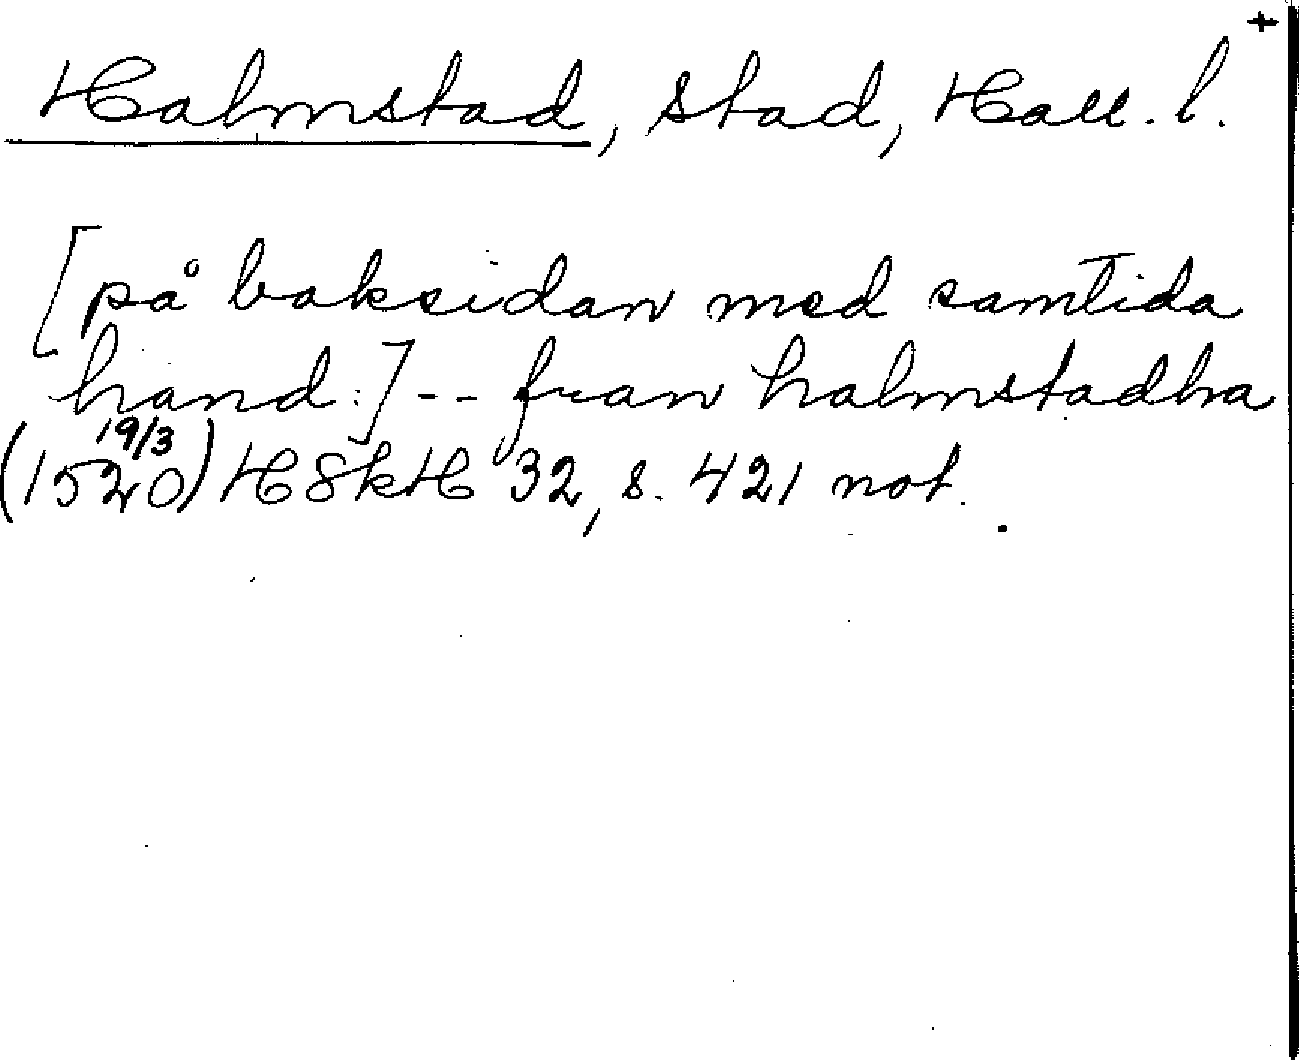 +
Halmstad, stad, Hall. l.
[på baksidan med samtida
hand:] -- fran halmstadha
19/3
(1520) HSkH 32, s. 421 not.